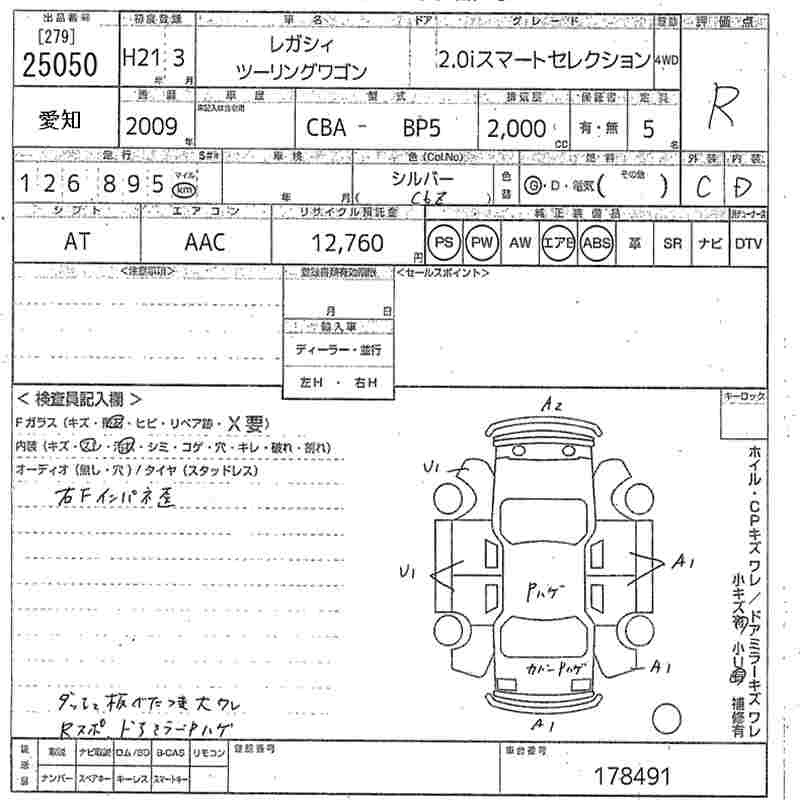 出品番号 初度登録 車名 ドア グレード 評価点
[279]
25050 H21 3 レガシィ 2.0iスマートセレクション 4WD R
年 月 ツーリングワゴン
愛知 車歴 型式 排気量 保証書 定員
2009 CBA - BP5 2,000 有・無 5
年 CC 名
走行 車検 色(Col.No) 色替 燃料 外装 内装
126895 マイル km 年 月 シルバー G・D・電気( その他 ) C D
( C6Z )
シフト エアコン リサイクル預託金 純正装備品
AT AAC 12,760 円 PS PW AW エアB ABS 革 SR ナビ DTV
<注意事項> 登録書類有効期限 <セールスポイント>
月 日
輸入車
ディーラー・並行
左H ・ 右H
< 検査員記入欄 > キーロック
Fガラス(キズ・飛石・ヒビ・リペア跡・X要)
内装(キズ・スレ・汚れ・シミ・コゲ・穴・キレ・破れ・剥れ)
オーディオ(無し・穴)/タイヤ(スタッドレス)
右Fインパネ歪
A2
U1
U1 A1
Pハゲ
カバーPハゲ A1
A1
ホイル・CPキズ ワレ/ドアミラーキズ ワレ
小キズ 小 補修有
ダッシュ板べたつき大ワレ
Rスポ、ドアミラーPハゲ
取説 ナビ取説 ロム/SD B-CAS リモコン 登録番号 車台番号
ナンバー スペアキー キーレス スマートキー 178491